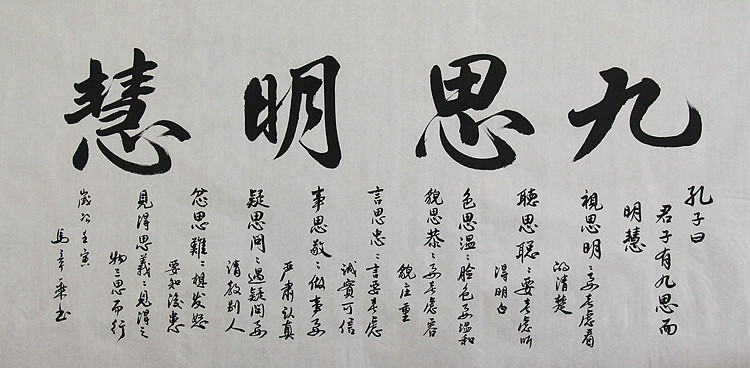 九思明慧
孔子曰
君子有九思而
明慧
視思明〻要考慮看
的清楚
聽思聰〻要考慮听
得明白
色思溫〻臉色要溫和
貌思恭〻要考慮容
貌庄重
言思忠〻言要考慮
誠實可信
事思敬〻做事要
严肃认真
疑思問〻遇疑問要
請教别人
忿思難〻想发怒
要知後患
見得思義〻見得之
物三思而行
歲次壬寅
馬章乘书